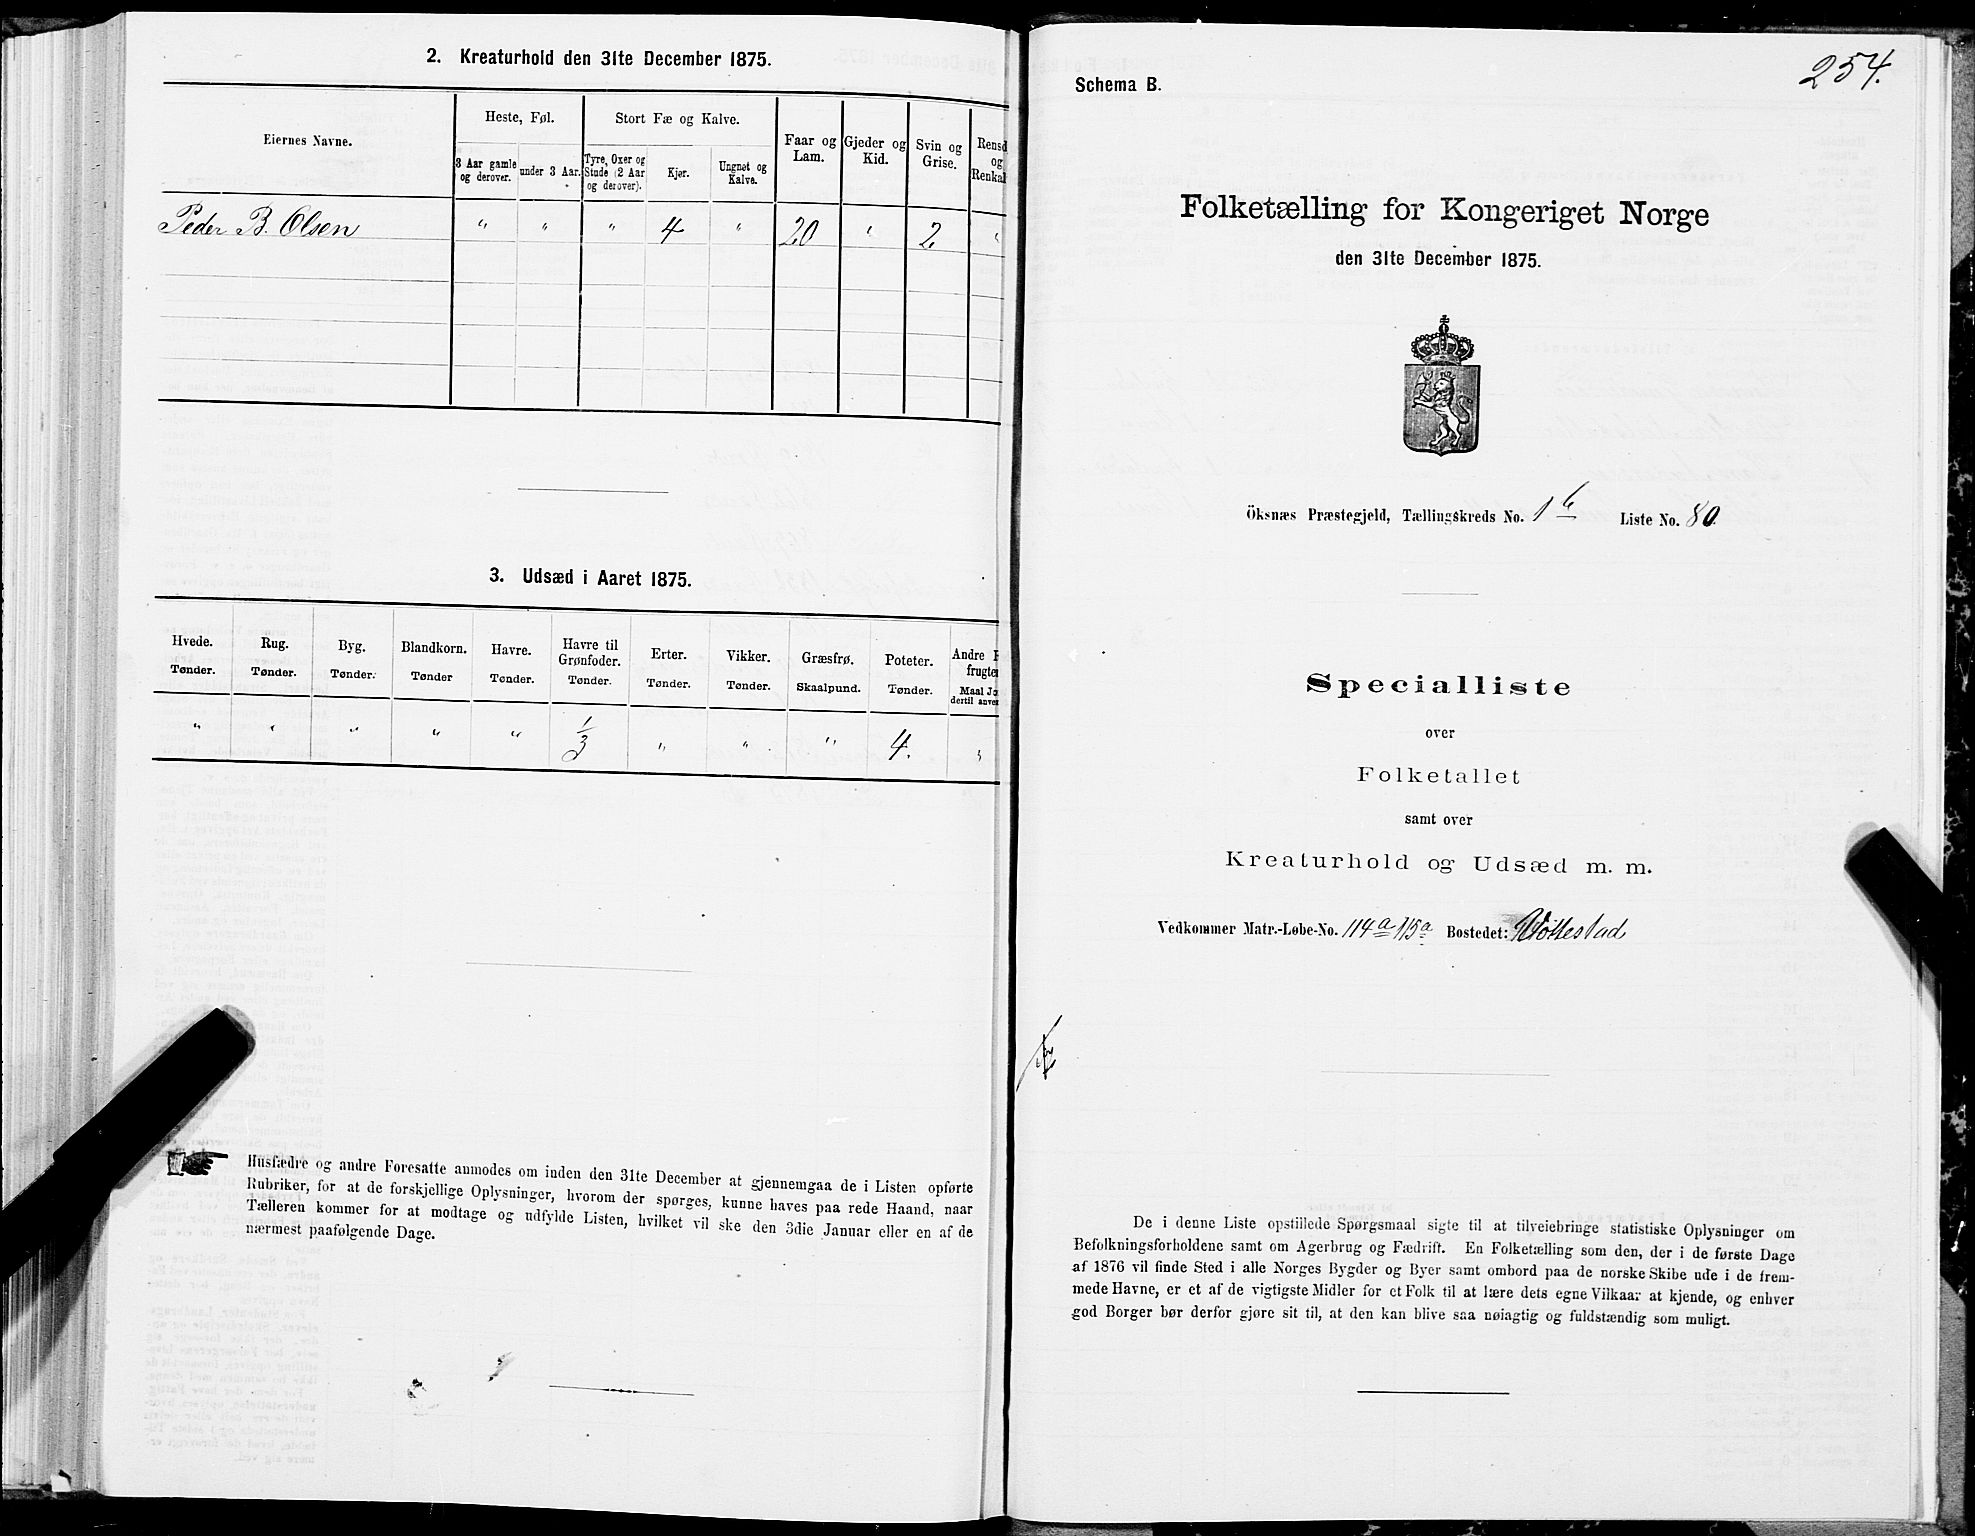 2. Kreaturhold den 31te December 1875.
Eiernes Navne.
Heste, Føl.
Stort Fæ og Kalve.
Faar og Lam.
Gjeder og Kid.
Svin og Grise.
Rensd
og
Renkal
3 Aar gamle og derover.
under 3 Aar.
Tyre, Oxer og Stude (2 Aar og derover).
Kjør.
Ungnøt og Kalve.
Peder B. Olsen " " " 4 " 20 " 2 "
3. Udsæd i Aaret 1875.
Hvede. Rug. Byg. Blandkorn. Havre. Havre til Grønfoder. Erter. Vikker. Græsfrø. Poteter. Andre
frugter
Tønder. Tønder. Tønder. Tønder Tønder. Tønder. Tønder. Tønder. Skaalpund. Tønder. Maal Jo
dertil anven
" " " " " 1/3 " " " 4. "
Husfædre og andre Foresatte anmodes om inden den 31te December at gjennemgaa de i Listen opførte
Rubriker, for at de forskjellige Oplysninger, hvorom der spørges, kunne haves paa rede Haand, naar
Tælleren kommer for at modtage og udfylde Listen, hvilket vil ske den 3die Januar eller en af de
nærmest paafølgende Dage.
254.
Schema B.
Folketælling for Kongeriget Norge
den 31te December 1875.
Öksnæs Præstegjeld, Tællingskreds No. 1 b Liste No. 80
Specialliste
over
Folketallet
samt over
Kreaturhold og Udsæd m. m.
Vedkommer Matr.-Løbe-No. 114a 115a Bostedet: Vottestad
De i denne Liste opstillede Spørgsmaal sigte til at tilveiebringe statistiske Oplysninger om
Befolkningsforholdene samt om Agerbrug og Fædrift. En Folketælling som den, der i de første Dage
af 1876 vil finde Sted i alle Norges Bygder og Byer samt ombord paa de norske Skibe ude i de frem-
mede Havne, er et af de vigtigste Midler for et Folk til at lære dets egne Vilkaar at kjende, og enhver
god Borger bør derfor gjøre sit til, at den kan blive saa nøiagtig og fuldstændig som muligt.